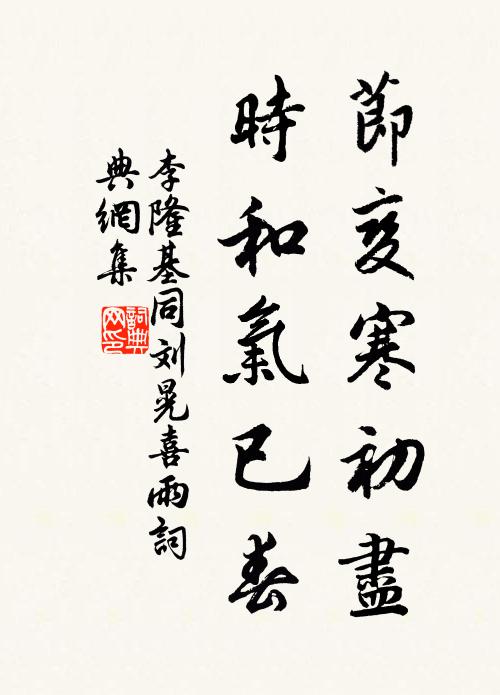 節變寒初盡
時和氣已春
李隆基同刘晃喜雨詞
典網集
詞典
网印